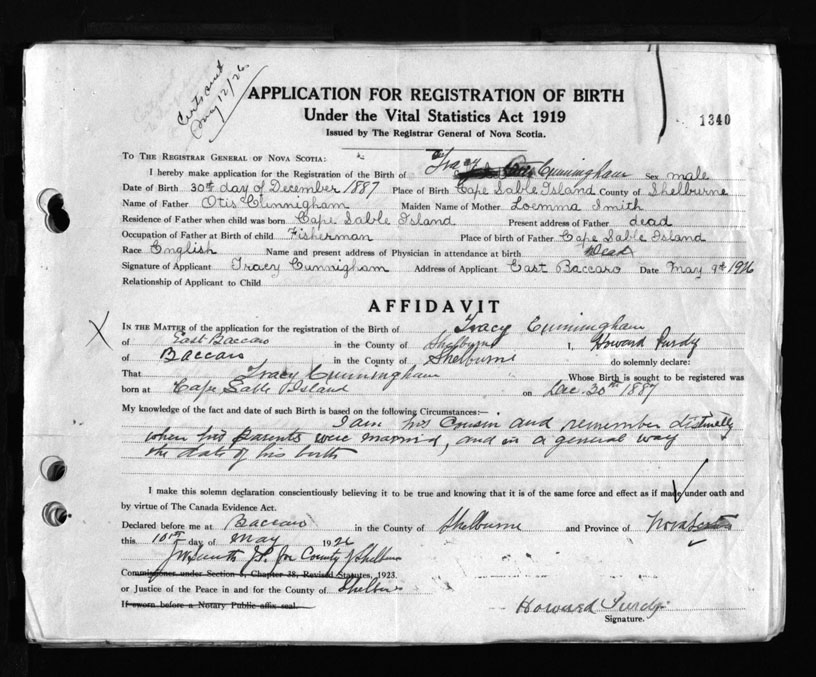 Certs sent
May 12/26
APPLICATION FOR REGISTRATION OF BIRTH
Under the Vital Statistics Act 1919
Issued by The Registrar General of Nova Scotia.
1340
To The Registrar General of Nova Scotia:
I hereby make application for the Registration of the Birth of Tracy Cunningham Sex male
Date of Birth 30th day of December 1887 Place of Birth Cape Sable Island County of Shelburne
Name of Father Otis Cunnigham Maiden Name of Mother Loemma Smith
Residence of Father when child was born Cape Sable Island Present address of Father dead
Occupation of Father at Birth of child Fisherman Place of birth of Father Cape Sable Island
Race English Name and present address of Physician in attendance at birth Dead
Signature of Applicant Tracy Cunnigham Address of Applicant East Baccaro Date May 9th 1926
Relationship of Applicant to Child
AFFIDAVIT
X In the Matter of the application for the registration of the Birth of Tracy Cunningham
of East Baccaro in the County of Shelburne I, Howard Purdy
of Baccaro in the County of Shelburne do solemnly declare:
That Tracy Cunningham Whose Birth is sought to be registered was
born at Cape Sable Island on Dec. 30th 1887
My knowledge of the fact and date of such Birth is based on the following Circumstances:—
I am his Cousin and remember distinctly
when his parents were married, and in a general way
the date of his birth
I make this solemn declaration conscientiously believing it to be true and knowing that it is of the same force and effect as if made under oath and
by virtue of The Canada Evidence Act.
Declared before me at Baccaro in the County of Shelburne and Province of Nova Scotia
this 10th day of May 1926
J.P. for County of Shelburne
Commissioner under Section 5, Chapter 38, Revised Statutes, 1923.
or Justice of the Peace in and for the County of Shelburne
If sworn before a Notary Public affix seal.
Howard Purdy
Signature.